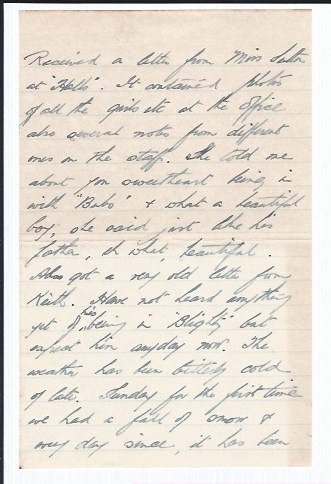 Received a letter from Miss
at "Hells". It contained photos
of all the girls etc at the office
also several notes from different
ones on the staff. She told me
about you sweetheart being in
with "Bubs" & what a beautiful
boy, she said just like his
father, eh what, beautiful.
Also got a very old letter from
Keith. Have not heard anything
yet of his being in "Blighty" but
expect him anyday now. The
weather has been bitterly cold
of late. Sunday for the first time
we had a fall of snow &
every day since, it has been